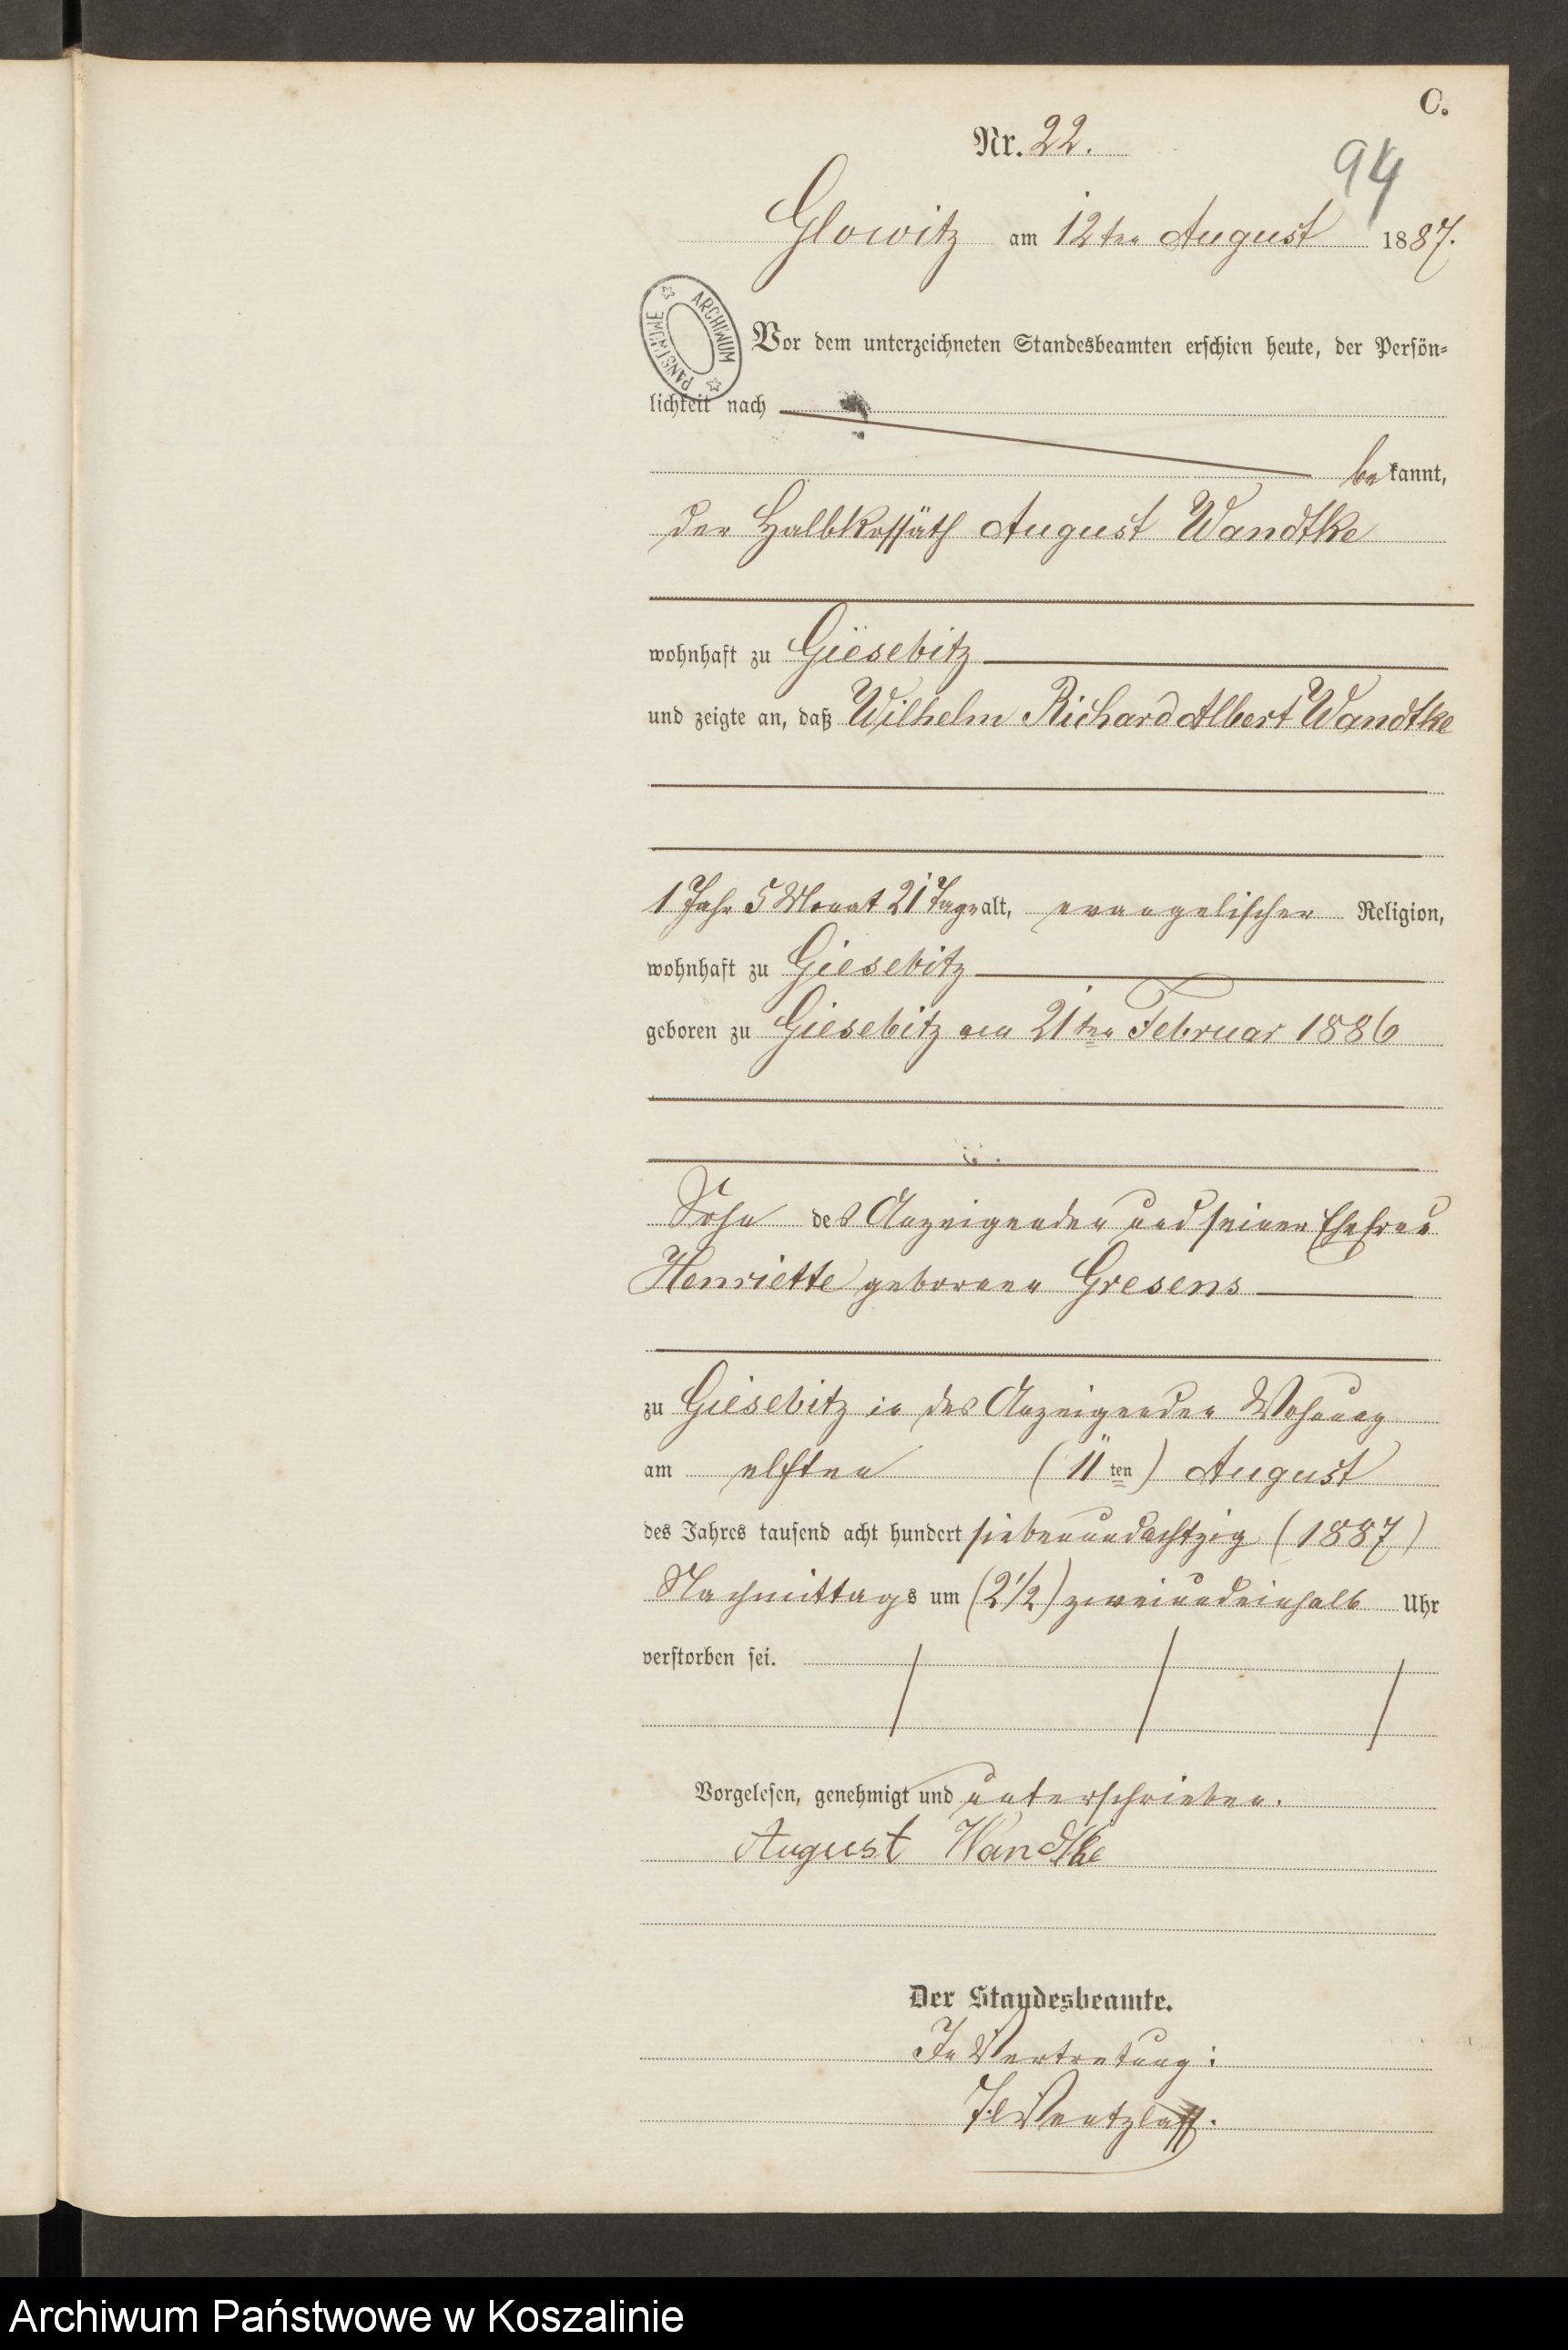 C.
Nr. 22.
94
Glowitz am 12ten August 1887.
ARCHIWUM PAŃSTWOWE
Vor dem unterzeichneten Standesbeamten erschien heute, der Persön-
lichkeit nach
bekannt,
der Halbkossäth August Wandtke
wohnhaft zu Giesebitz
und zeigte an, daß Wilhelm Richard Albert Wandtke
1 Jahr 5 Monat 21 Tage alt, evangelischer Religion,
wohnhaft zu Giesebitz
geboren zu Giesebitz am 21ten Februar 1886
Sohn des Anzeigenden und seiner Ehefrau
Henriette geborenen Gresens
zu Giesebitz in des Anzeigenden Wohnung
am elften (11ten) August
des Jahres tausend acht hundert siebenundachtzig (1887)
Nachmittags um (2 1/2) zweiundeinhalb Uhr
verstorben sei.
Vorgelesen, genehmigt und unterschrieben.
August Wandtke
Der Standesbeamte.
In Vertretung:
Wentzlaff.
Archiwum Państwowe w Koszalinie